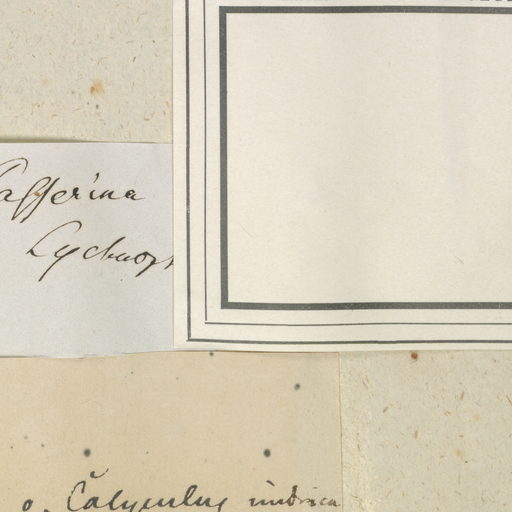 afferina
Lychnoph
o. Calyculus imbrica